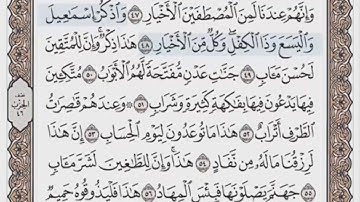 وَإِنَّهُمْ عِندَنَا لَمِنَ ٱلْمُصْطَفَيْنَ ٱلْأَخْيَارِ ٤٧ وَٱذْكُرْ إِسْمَٰعِيلَ
وَٱلْيَسَعَ وَذَا ٱلْكِفْلِ ۖ وَكُلٌّ مِّنَ ٱلْأَخْيَارِ ٤٨ هَٰذَا ذِكْرٌ ۚ وَإِنَّ لِلْمُتَّقِينَ
لَحُسْنَ مَـَٔابٍ ٤٩ جَنَّٰتِ عَدْنٍ مُّفَتَّحَةً لَّهُمُ ٱلْأَبْوَٰبُ ٥٠ مُتَّكِـِٔينَ
فِيهَا يَدْعُونَ فِيهَا بِفَٰكِهَةٍ كَثِيرَةٍ وَشَرَابٍ ٥١ ۞ وَعِندَهُمْ قَٰصِرَٰتُ
ٱلطَّرْفِ أَتْرَابٌ ٥٢ هَٰذَا مَا تُوعَدُونَ لِيَوْمِ ٱلْحِسَابِ ٥٣ إِنَّ هَٰذَا
لَرِزْقُنَا مَا لَهُۥ مِن نَّفَادٍ ٥٤ هَٰذَا ۚ وَإِنَّ لِلطَّٰغِينَ لَشَرَّ مَـَٔابٍ
٥٥ جَهَنَّمَ يَصْلَوْنَهَا فَبِئْسَ ٱلْمِهَادُ ٥٦ هَٰذَا فَلْيَذُوقُوهُ حَمِيمٌ
نصف
الحزب
٤٦